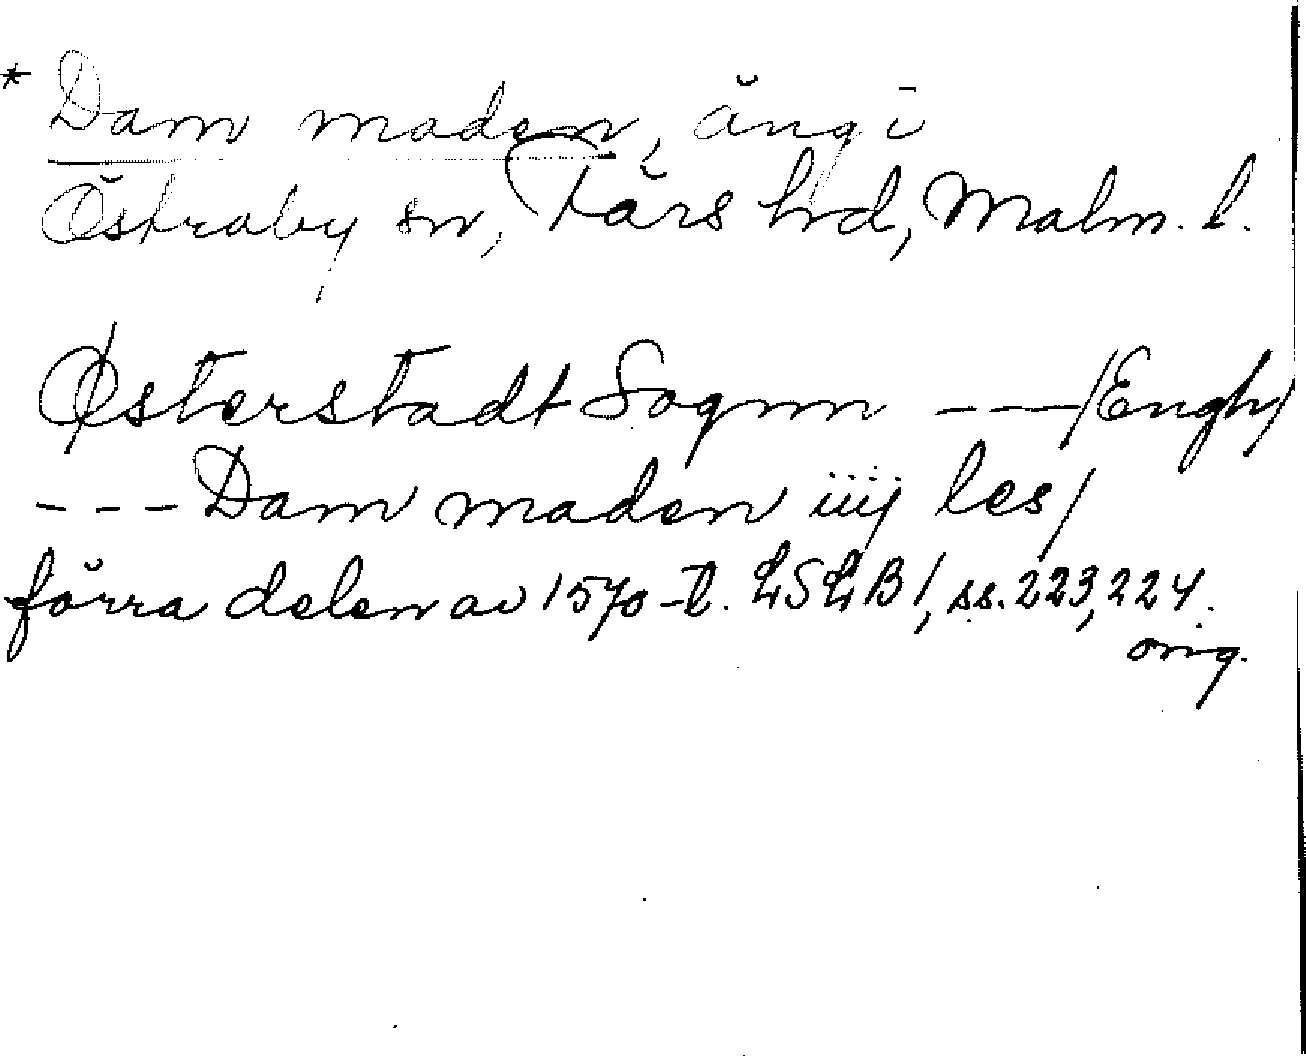 * Dam maden, äng i
Östraby sn, Färs hd, Malm. l.
Østerstadt Sognn ---/Engh/
---Dam maden iiij les/
förra delen av 1570-t. LSLB 1, ss. 223, 224.
orig.